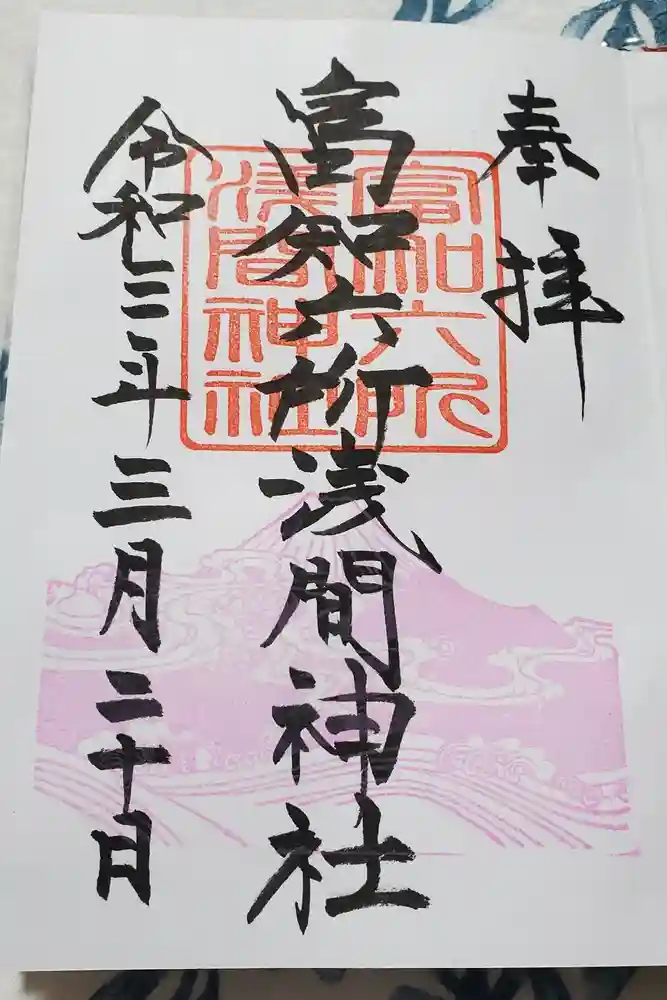 奉拝
富知六所浅間神社
富知六所
浅間神社
令和三年三月二十日